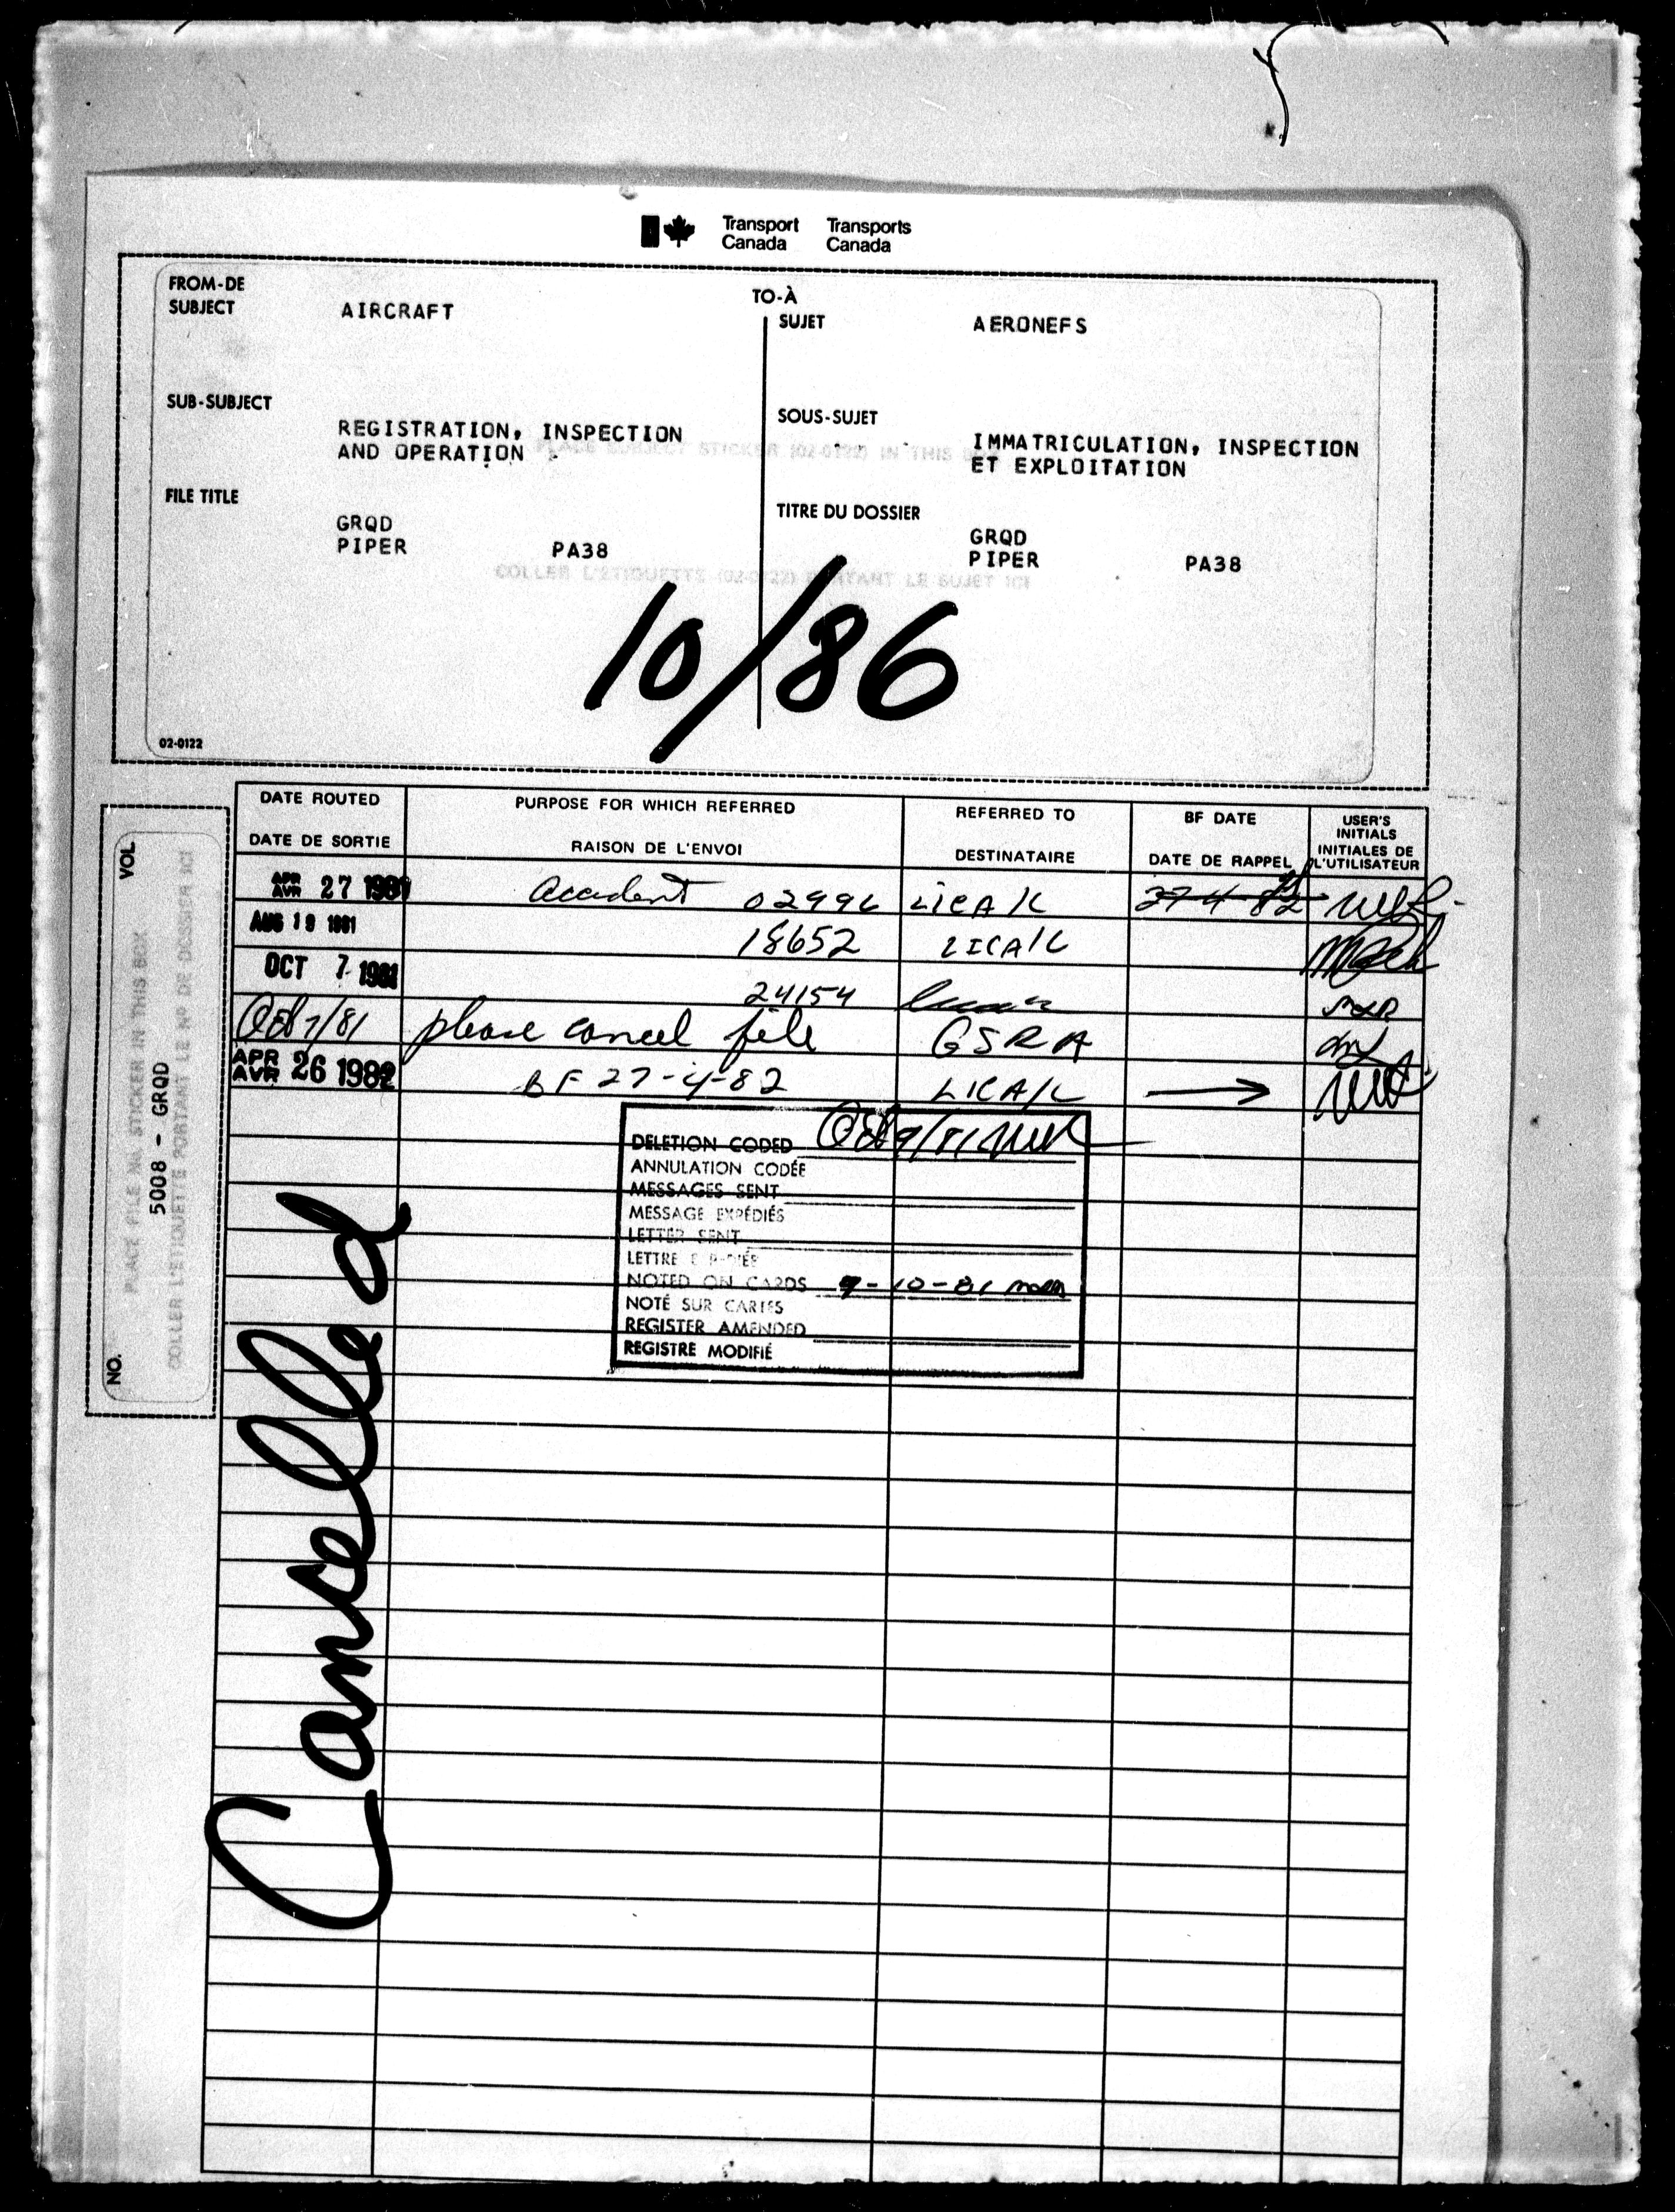 Transport Canada
Transports Canada
FROM-DE
SUBJECT
AIRCRAFT
TO-À
SUJET
AERONEFS
SUB-SUBJECT
REGISTRATION, INSPECTION
AND OPERATION
SOUS-SUJET
IMMATRICULATION, INSPECTION
ET EXPLOITATION
PLACE SUBJECT STICKER (02-0122) IN THIS BOX
FILE TITLE
GRQD
PIPER PA38
TITRE DU DOSSIER
GRQD
PIPER PA38
COLLER L'ETIQUETTE (02-0122) PORTANT LE SUJET ICI
10/86
02-0122
DATE ROUTED
DATE DE SORTIE
PURPOSE FOR WHICH REFERRED
RAISON DE L'ENVOI
REFERRED TO
DESTINATAIRE
BF DATE
DATE DE RAPPEL
USER'S
INITIALS
INITIALES DE
L'UTILISATEUR
APR AVR 27 1981 Accident 02996 LICA/C 27-4-82
AUG 19 1981 18652 LICA/C
OCT 7 1981 24154
Oct 7/81 please cancel file GSRA
APR AVR 26 1982 BF 27-4-82 LICA/C
DELETION CODED Oct 9/81
ANNULATION CODÉE
MESSAGES SENT
MESSAGE EXPÉDIÉS
LETTER SENT
LETTRE EXPÉDIÉE
NOTED ON CARDS 9-10-81
NOTÉ SUR CARTES
REGISTER AMENDED
REGISTRE MODIFIÉ
NO. VOL
PLACE FILE No. STICKER IN THIS BOX
5008 - GRQD
COLLER L'ETIQUETTE PORTANT LE Nº DE DOSSIER ICI
Cancelled